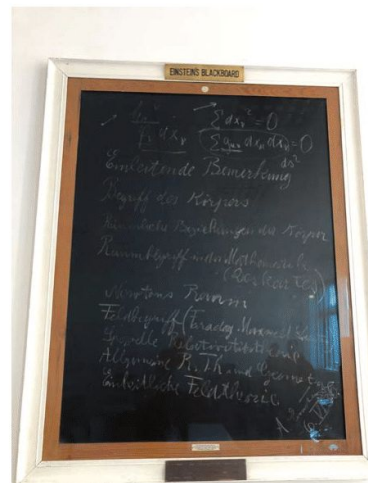 EINSTEIN'S BLACKBOARD
Σ dxν² = 0
dxν
Σ gμν dxμ dxν = 0
ds²
Einleitende Bemerkung
Begriff des Körpers
Beziehungen der Körper
Raumbegriff in der Mathematik
(Descartes)
Newtons Raum
Feldbegriff (Faraday, Maxwell
Spezielle Relativitätstheorie
Allgemeine R. Th. und Geometrie
Einheitliche Feldtheorie